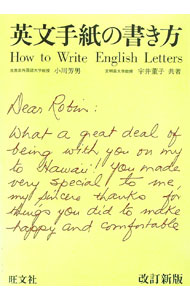 英文手紙の書き方
How to Write English Letters
小川芳男
宇井葉子 共著
Dear Robin:
What a great deal of
being with you on my
to Hawaii! you made
very special to me,
my sincere thanks for
things you did to make
happy and comfortable
旺文社
改訂新版